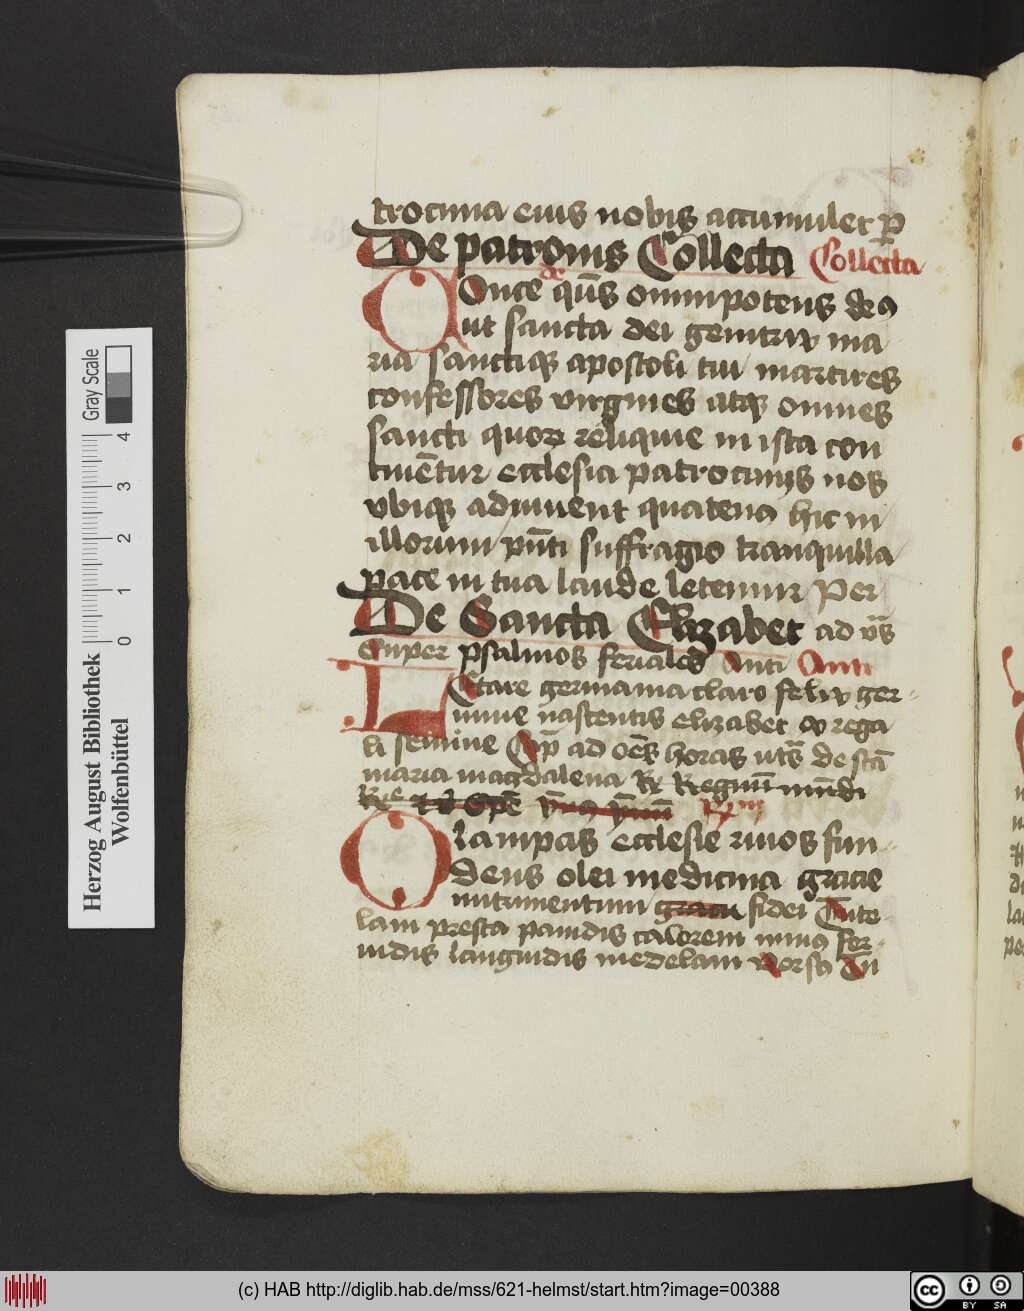 trocinia eius nobis accumulet ꝑ
De patronis Collecta Collecta
COnce de q̄us omnipotens deꝰ
ut sancta dei genitrix ma
ria sanctiqꝫ apostoli tui martires
confessores virgines atqꝫ omnes
sancti quorꝫ reliquie in ista con
tinētur ecclesia patrocinijs nos
vbiqꝫ adiuuent quatenꝰ hic in
illorum pn̄ti suffragio tranquilla
pace in tua laude letemur Per
De Sancta Elizabet ad v̄s
Super psalmos feriales Anti Anti
LEtare germania claro felix ger
mine nascentis elizabet ex rega
li semine Cp̄ ad oēs horas ut s̄ de stā
maria magdalena R Regnū mūdi
O lampas ecclesie riuos fun
dens olei medicina gracie
nutrimentum gracie fidei Tute
lam presta pauidis calorem minꝰ fer
uidis languidis medelam
Herzog August Bibliothek
Wolfenbüttel
0 1 2 3 4
Gray Scale
(c) HAB http://diglib.hab.de/mss/621-helmst/start.htm?image=00388
cc BY SA